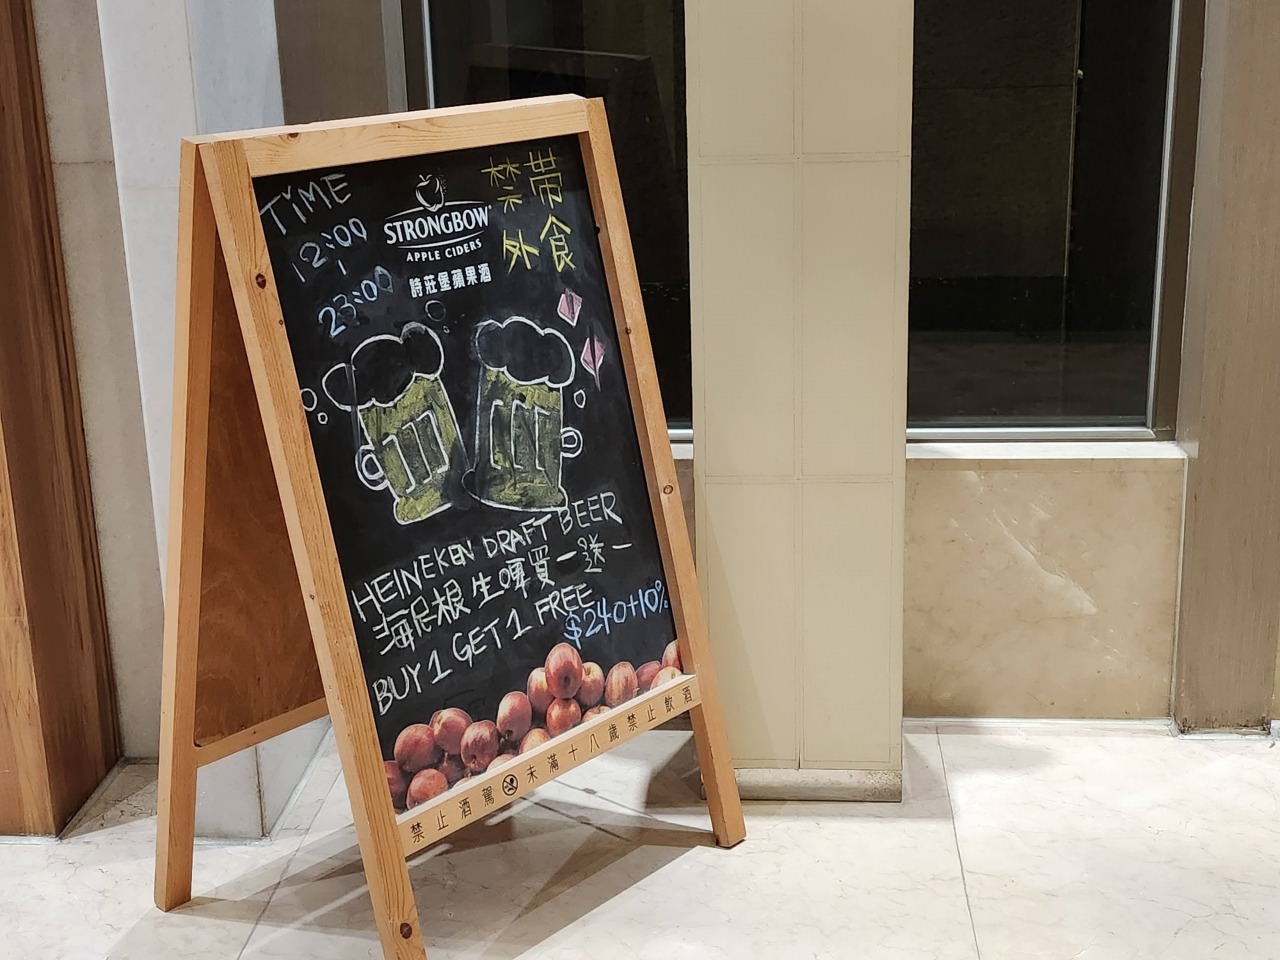 TIME
12:00
|
23:00
STRONGBOW
APPLE CIDERS
詩莊堡蘋果酒
禁帶
外食
HEINEKEN DRAFT BEER
海尼根生啤買一送一
BUY 1 GET 1 FREE
$240+10%
禁止酒駕 未滿十八歲禁止飲酒